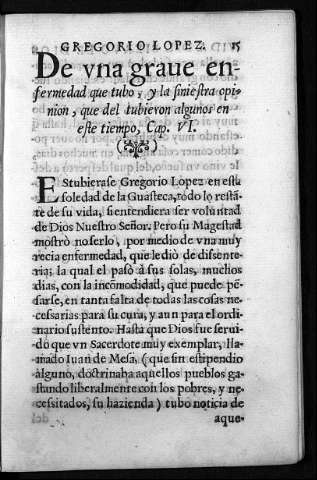 GREGORIO LOPEZ. 15
De vna graue en-
fermedad que tubo, y la siniestra opi-
nion, que del tubieron algunos en
este tiempo, Cap. VI.
EStubierase Gregorio Lopez en esta
soledad de la Guasteca, todo lo restã-
te de su vida, si entendiera ser voluntad
de Dios Nuestro Señor. Pero su Magestad
mostrò no serlo, por medio de vna muy
recia enfermedad, que le diò de disente-
ria; la qual el pasò à sus solas, muchos
dias, con la incomodidad, que puede pẽ-
sarse, en tanta falta de todas las cosas ne-
cessarias para su cura, y aun para el ordi-
nario sustento. Hasta que Dios fue serui-
do que vn Sacerdote muy exemplar, lla-
mado Iuan de Mesa, (que sin estipendio
alguno, doctrinaba aquellos pueblos ga-
stando liberalmente con los pobres, y ne-
cessitados, su hazienda) tubo noticia de
aque-